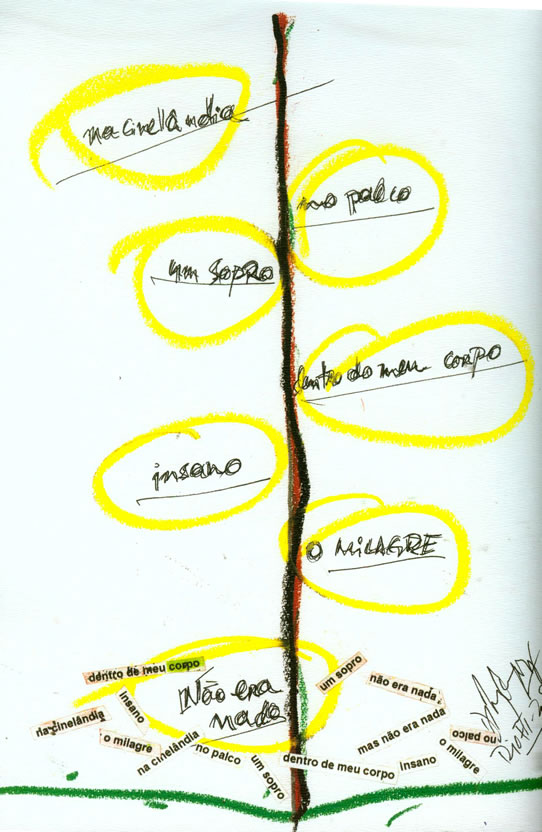 na cinelândia
no palco
um sopro
dentro do meu corpo
insano
O MILAGRE
Não era
nada
dentro de meu corpo
um sopro
não era nada,
insano
na cinelândia
o milagre
na cinelândia
no palco
um sopro
dentro de meu corpo
insano
mas não era nada
no palco
o milagre